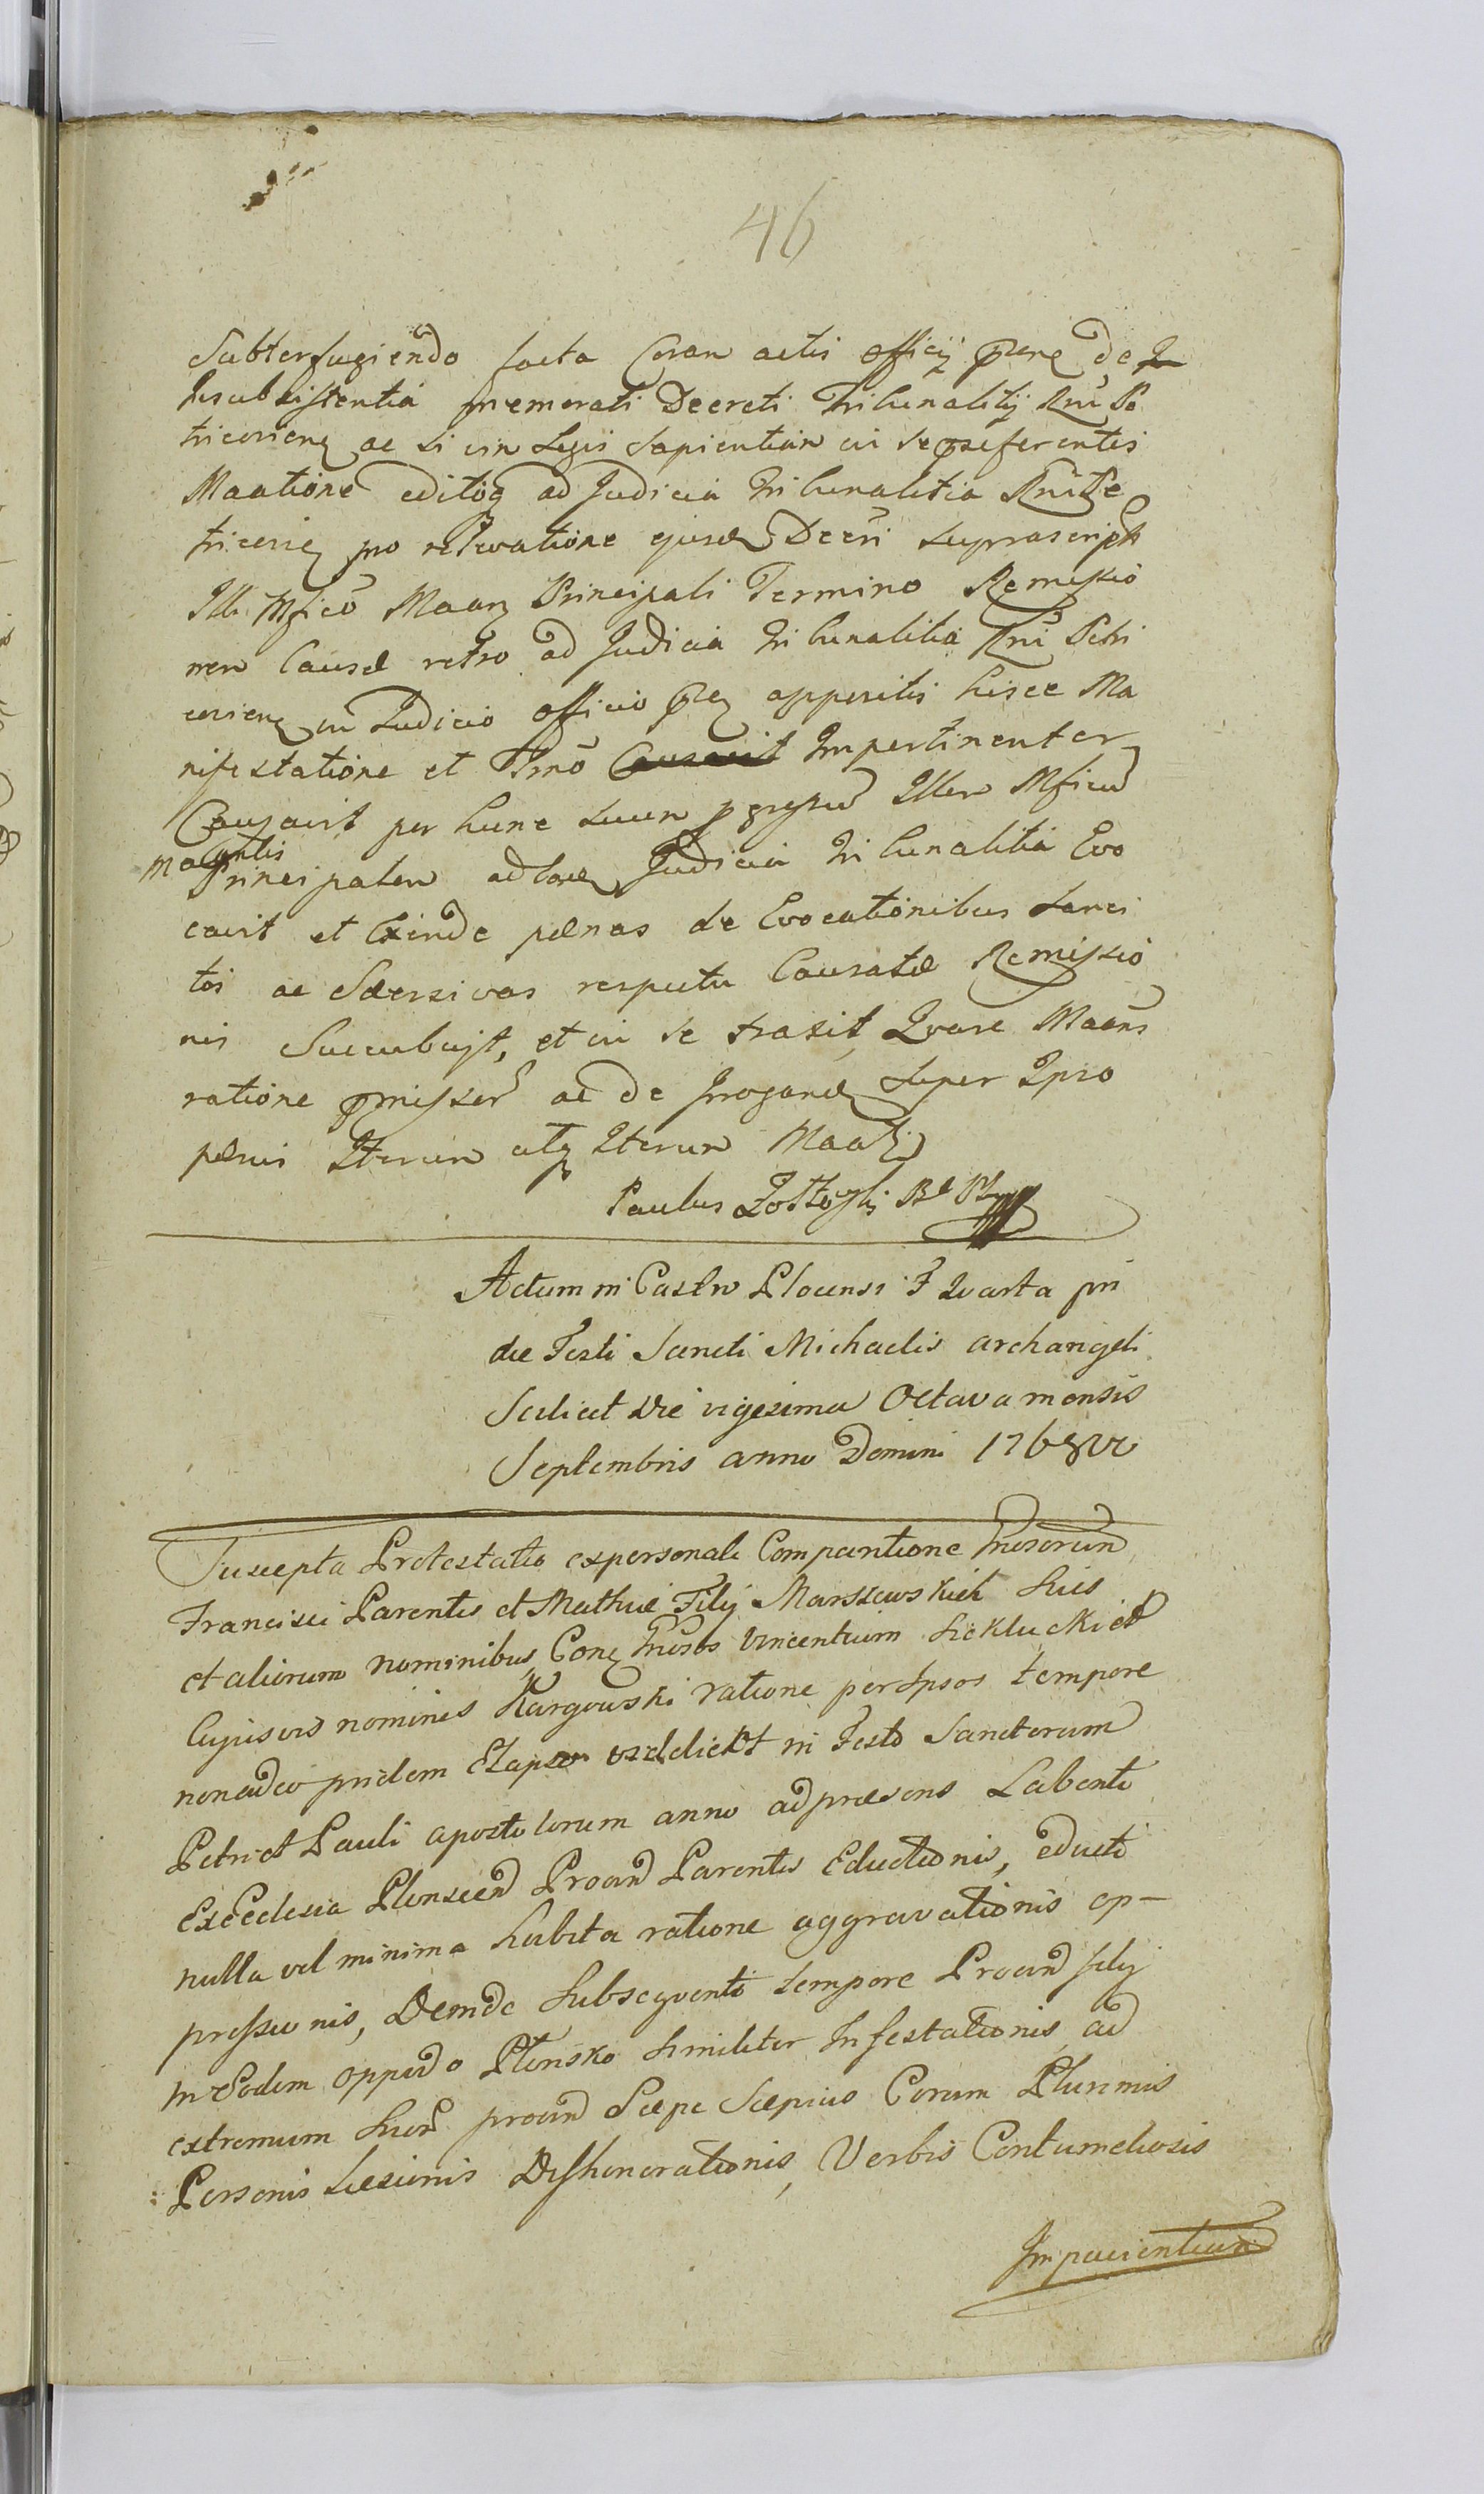 46
Subterfugiendo facta Coram actis officij de
Insubsistentia memorati Decreti Tribunalitij Rni Pe
tricorien ac si vim Legis Sapientiam in se referentis
Maatione editoq ad Judicia Tribunalitia Rni Pe
tricorien pro relevatione ejusd Decri suprascripti
Illi Mfico Maan Principali Termino Remissio
nem Causæ retro ad Judicia Tribunalitia Rni Petri
corien in Judicio officio appositis hisce Ma
nifestatione et Tmno Causavit Impertinenter
Causavit per hunc suum Illem Mficu
Maantis
Principalem ad Judicia Tribunalitia Evo
cavit et Exinde pænas de Evocationibus Sanci
tas ac respectu Causatæ Remissio
nis Succubuit, et in se traxit, Quare Maans
ratione pmissor ac de Irrogand super Ipso
pænis Iterum atq Iterum Maat
Paulus
Actum in Castro Plocensi F Quarta pri
die Festi Sancti Michaelis archangeli
Scilicet Die vigesima Octava mensis
Septembris anno Domini 1768vo
Suscepta Protestatio expersonali Comparitione Gnosorum
Francisci Parentis et Mathiæ Filij Marszewskich Suis
et aliorum nominibus, Con Gnosos Vincentium Sieklucki et
Cujusvis nominis Kargowski ratione per Ipsos tempore
nonadeo pridem Elapso in Festo Sanctorum
Petri et Pauli apostolorum anno adpræsens Labenti
ExEcclesia Plonscen Parentis Eductionis, educti
nulla vel minima habita ratione aggravationis op-
pressionis, Deinde Subsequenti tempore filij
in Eodem oppido Plonsko Similiter Infestationis, ad
extremum Suor Sæpe Sæpius Coram Plurimis
Personis Læsionis Dishonorationis, Verbis Contumeliosis
Impacientium